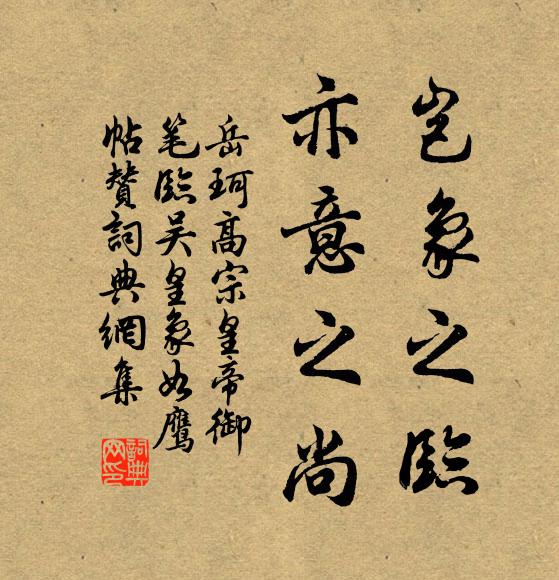 岂象之臨
亦意之尚
岳珂高宗皇帝御
笔臨吴皇象如鹰
帖赞詞典網集
詞典
网印